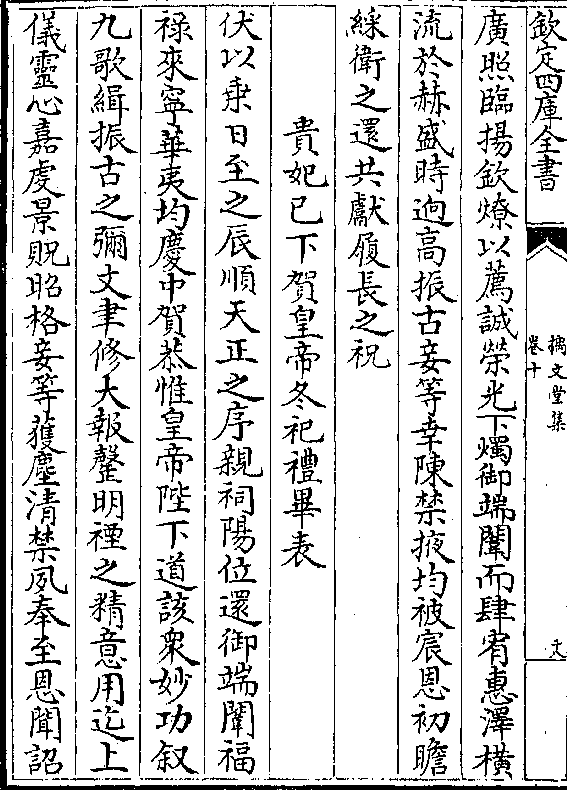 欽定四庫全書
摛文堂集
卷十
廣照臨揚欽燎以薦誠榮光下燭御端闈而肆宥惠澤橫
流於赫盛時逈高振古妾等幸陳禁掖均被宸恩初瞻
綵衛之還共獻履長之祝
貴妃已下賀皇帝冬祀禮畢表
伏以乗日至之辰順天正之序親祠陽位還御端闈福
祿來寧華夷均慶中賀恭惟皇帝陛下道該衆妙功叙
九歌緝振古之彌文聿修大報罄明禋之精意用迄上
儀靈心嘉虔景貺昭格妾等獲塵清禁夙奉至恩聞詔